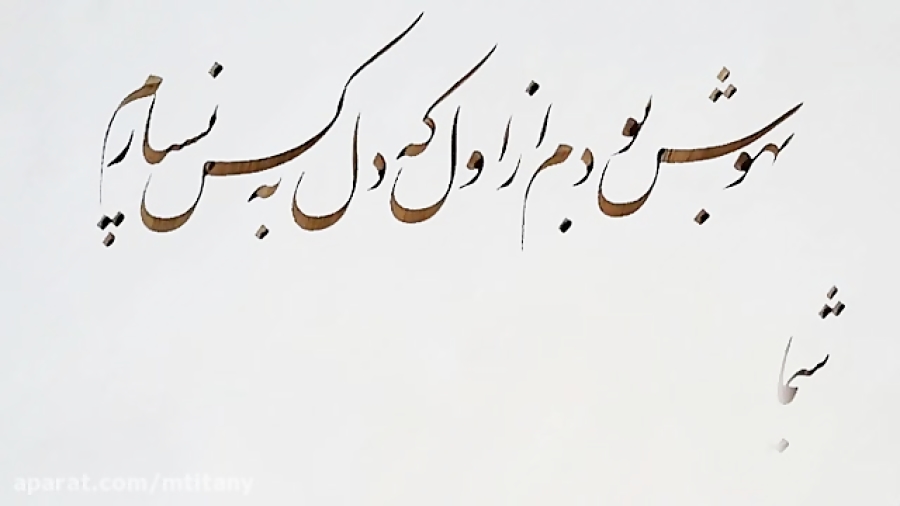 بهوش بودم از اول که دل به کس نسپارم
شما
aparat.com/mtitany